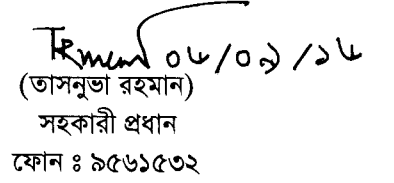 ০৮/০৯/১৪
(তাসনুভা রহমান)
সহকারী প্রধান
ফোন ঃ ৯৫৬১৫৩২